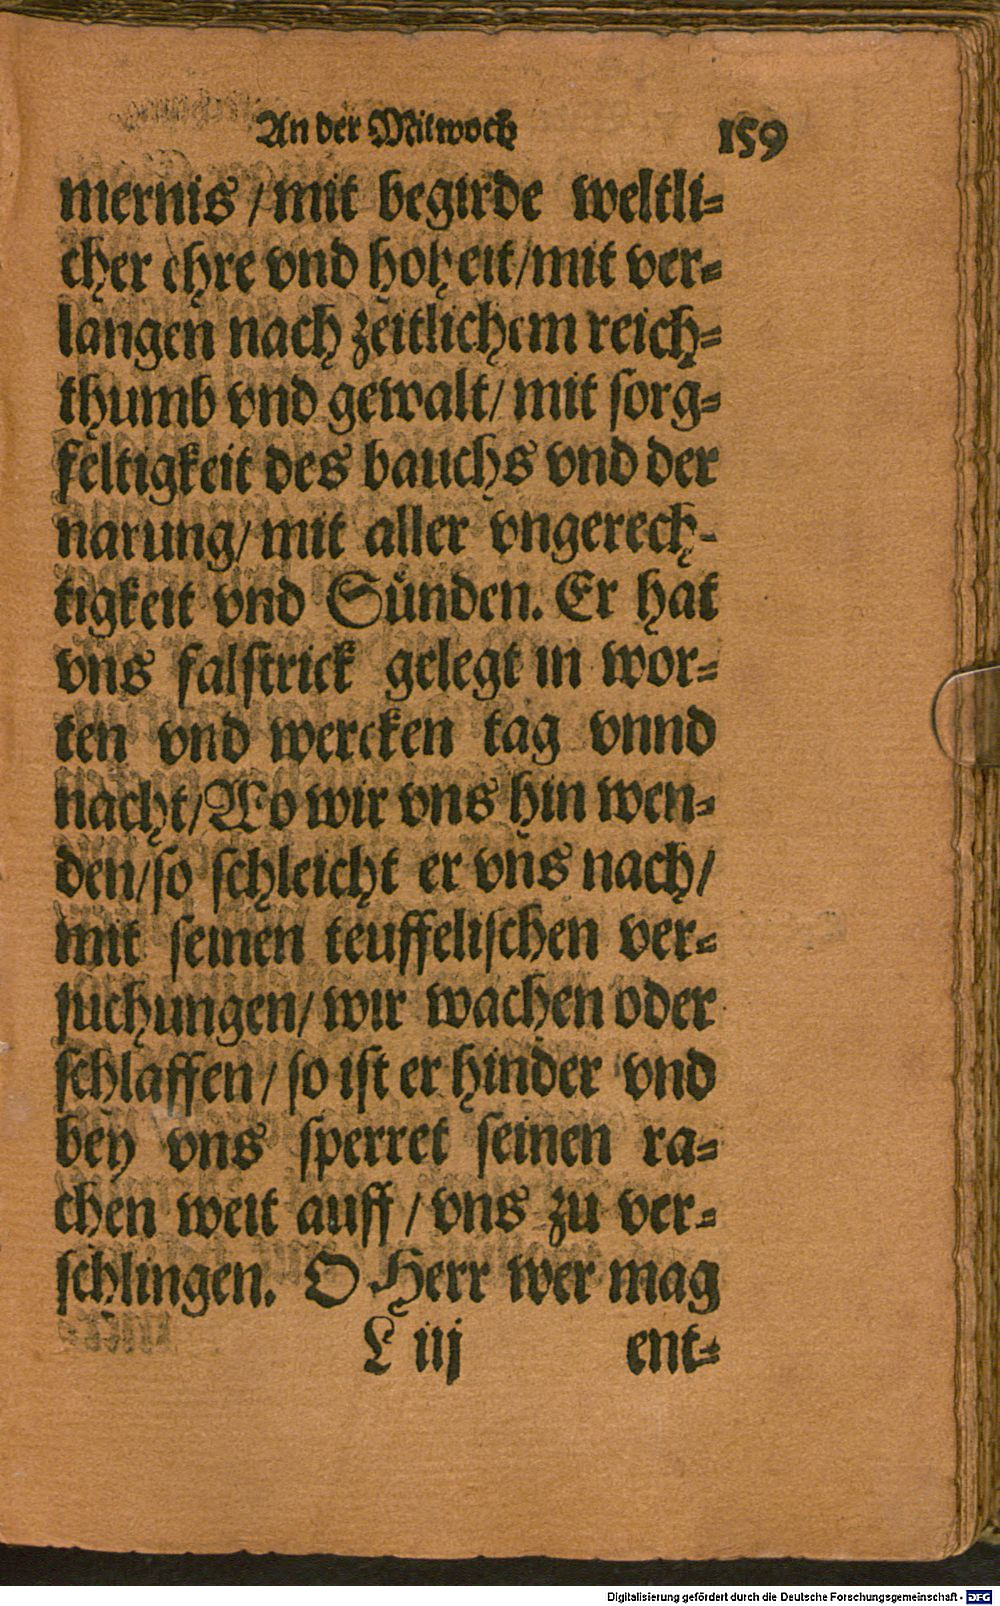 An der Mitwoch 159
mernis / mit begirde weltli-
cher ehre vnd hoheit / mit ver-
langen nach zeitlichem reich-
thumb vnd gewalt / mit sorg-
feltigkeit des bauchs vnd der
narung / mit aller vngerech-
tigkeit vnd Suͤnden. Er hat
vns falstrick gelegt in wor-
ten vnd wercken tag vnnd
nacht / Wo wir vns hin wen-
den / so schleicht er vns nach /
mit seinen teuffelischen ver-
suchungen / wir wachen oder
schlaffen / so ist er hinder vnd
bey vns sperret seinen ra-
chen weit auff / vns zu ver-
schlingen. O Herr wer mag
L iij ent-
Digitalisierung gefördert durch die Deutsche Forschungsgemeinschaft - DFG